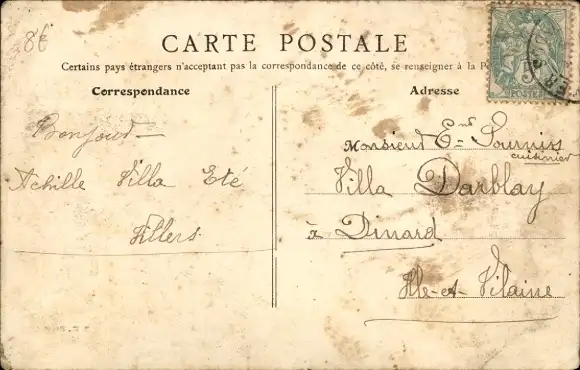 8€
CARTE POSTALE
Certains pays étrangers n'acceptant pas la correspondance de ce côté, se renseigner à la
Correspondance
Adresse
Bonjour
Achille Villa Eté
Villers
Monsieur
cuisinier
Villa Darblay
à Dinard
Ille-et-Vilaine
POSTES